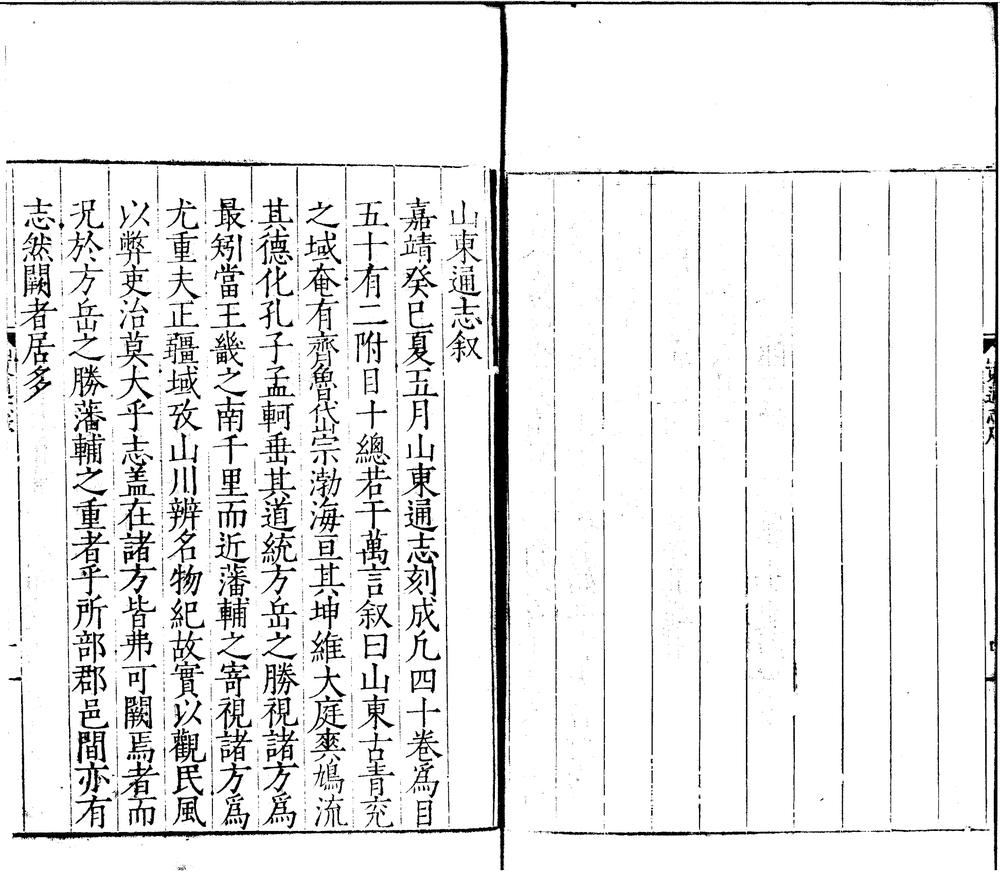 山東通志叙
嘉靖癸巳夏五月山東通志刻成凢四十卷爲目
五十有二附目十總若干萬言叙曰山東古青兖
之域奄有齊魯岱宗渤海亘其坤維大庭爽鳩流
其德化孔子孟軻垂其道統方岳之勝視諸方爲
最矧當王畿之南千里而近藩輔之寄視諸方爲
尤重夫正疆域攷山川辨名物紀故實以觀民風
以弊吏治莫大乎志盖在諸方皆弗可闕焉者而
况於方岳之勝藩輔之重者乎所部郡邑間亦有
志然闕者居多